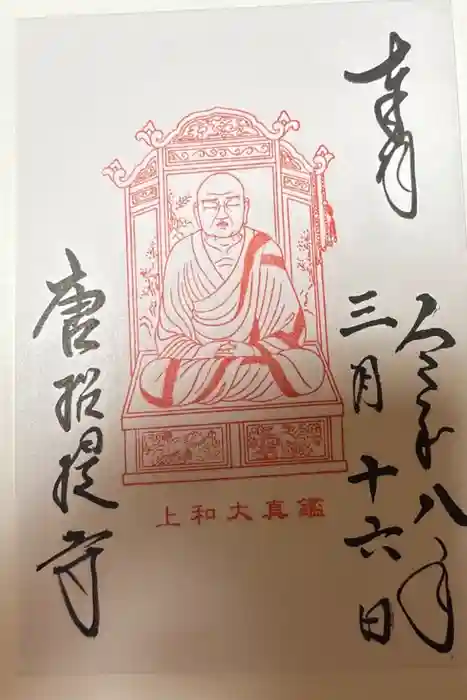 奉拝
令和八年
三月十六日
鑑真大和上
唐招提寺